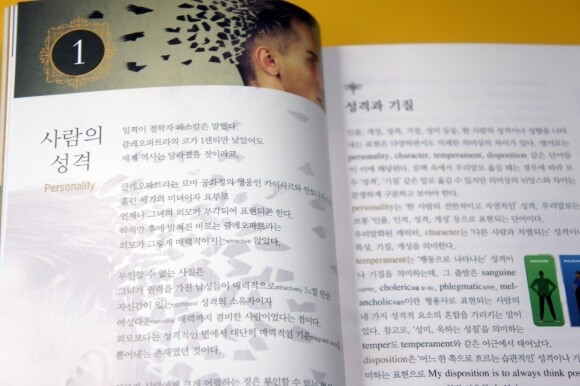 1
사람의
성격
Personality
일찍이 철학자 파스칼은 말했다.
클레오파트라의 코가 1센티만 낮았어도
세계 역사는 달라졌을 것이라고.
클레오파트라는 로마 공화정의 영웅인 카이사르와 안토니우스를
홀린 세기의 미녀이자 요부로
언제나 그녀의 외모가 부각되어 표현되곤 한다.
하지만 후에 밝혀진 바로는 클레오파트라는
외모가 그렇게 매력적이지는attractive 않았다.
부인할 수 없는 사실은
그녀가 권력을 가진 남성들이 매력적으로attractively 느낄 만큼
자신감이 있는 성격의 소유자이자
여성다운 매력까지 겸비한 사람이었다는 점이다.
외모보다는 성격적인 면에서 대단히 매력적인 기운
뿜어내는 존재였던 것이다.
성격과 기질
인품, 개성, 성격, 기질, 성미 등등, 한 사람의 성격이나 성향을 나타
내는 표현은 다양하면서도 미세한 의미상의 차이가 있다. 영어로는
personality, character, temperament, disposition 같은 단어들
이 이에 해당된다. 문맥 속에서 우리말로 옮길 때는 경우에 따라 모
두 '성격', '기질' 같은 말로 옮길 수 있지만 의미상의 뉘앙스의 차이는
분명하게 구분하고 보아야 한다.
personality는 '한 사람의 전반적이고 자연적인' 성격, 우리말로는
보통 '인품, 인격, 성격, 개성' 등으로 표현되는 단어이다.
우리말화된 캐릭터, character는 '다른 사람과 차별되는' 성격이나
특성, 기질, 개성을 의미한다.
temperament는 '행동으로 나타나는' 성격이
나 기질을 의미하는데, 그 출발은 sanguine
choleric phlegmatic mel-
ancholic이란 형용사로 표현되는 사람의
네 가지 성격적 요소의 혼합을 가리키는 말이
었다. 참고로, '성미, 욱하는 성질'을 의미하는
temper도 temperament와 같은 어근에서 태어났다.
disposition은 '어느 한 쪽으로 흐르는 습관적인' 성격이나 기
미하여 표현된다 My disposition is to always think po